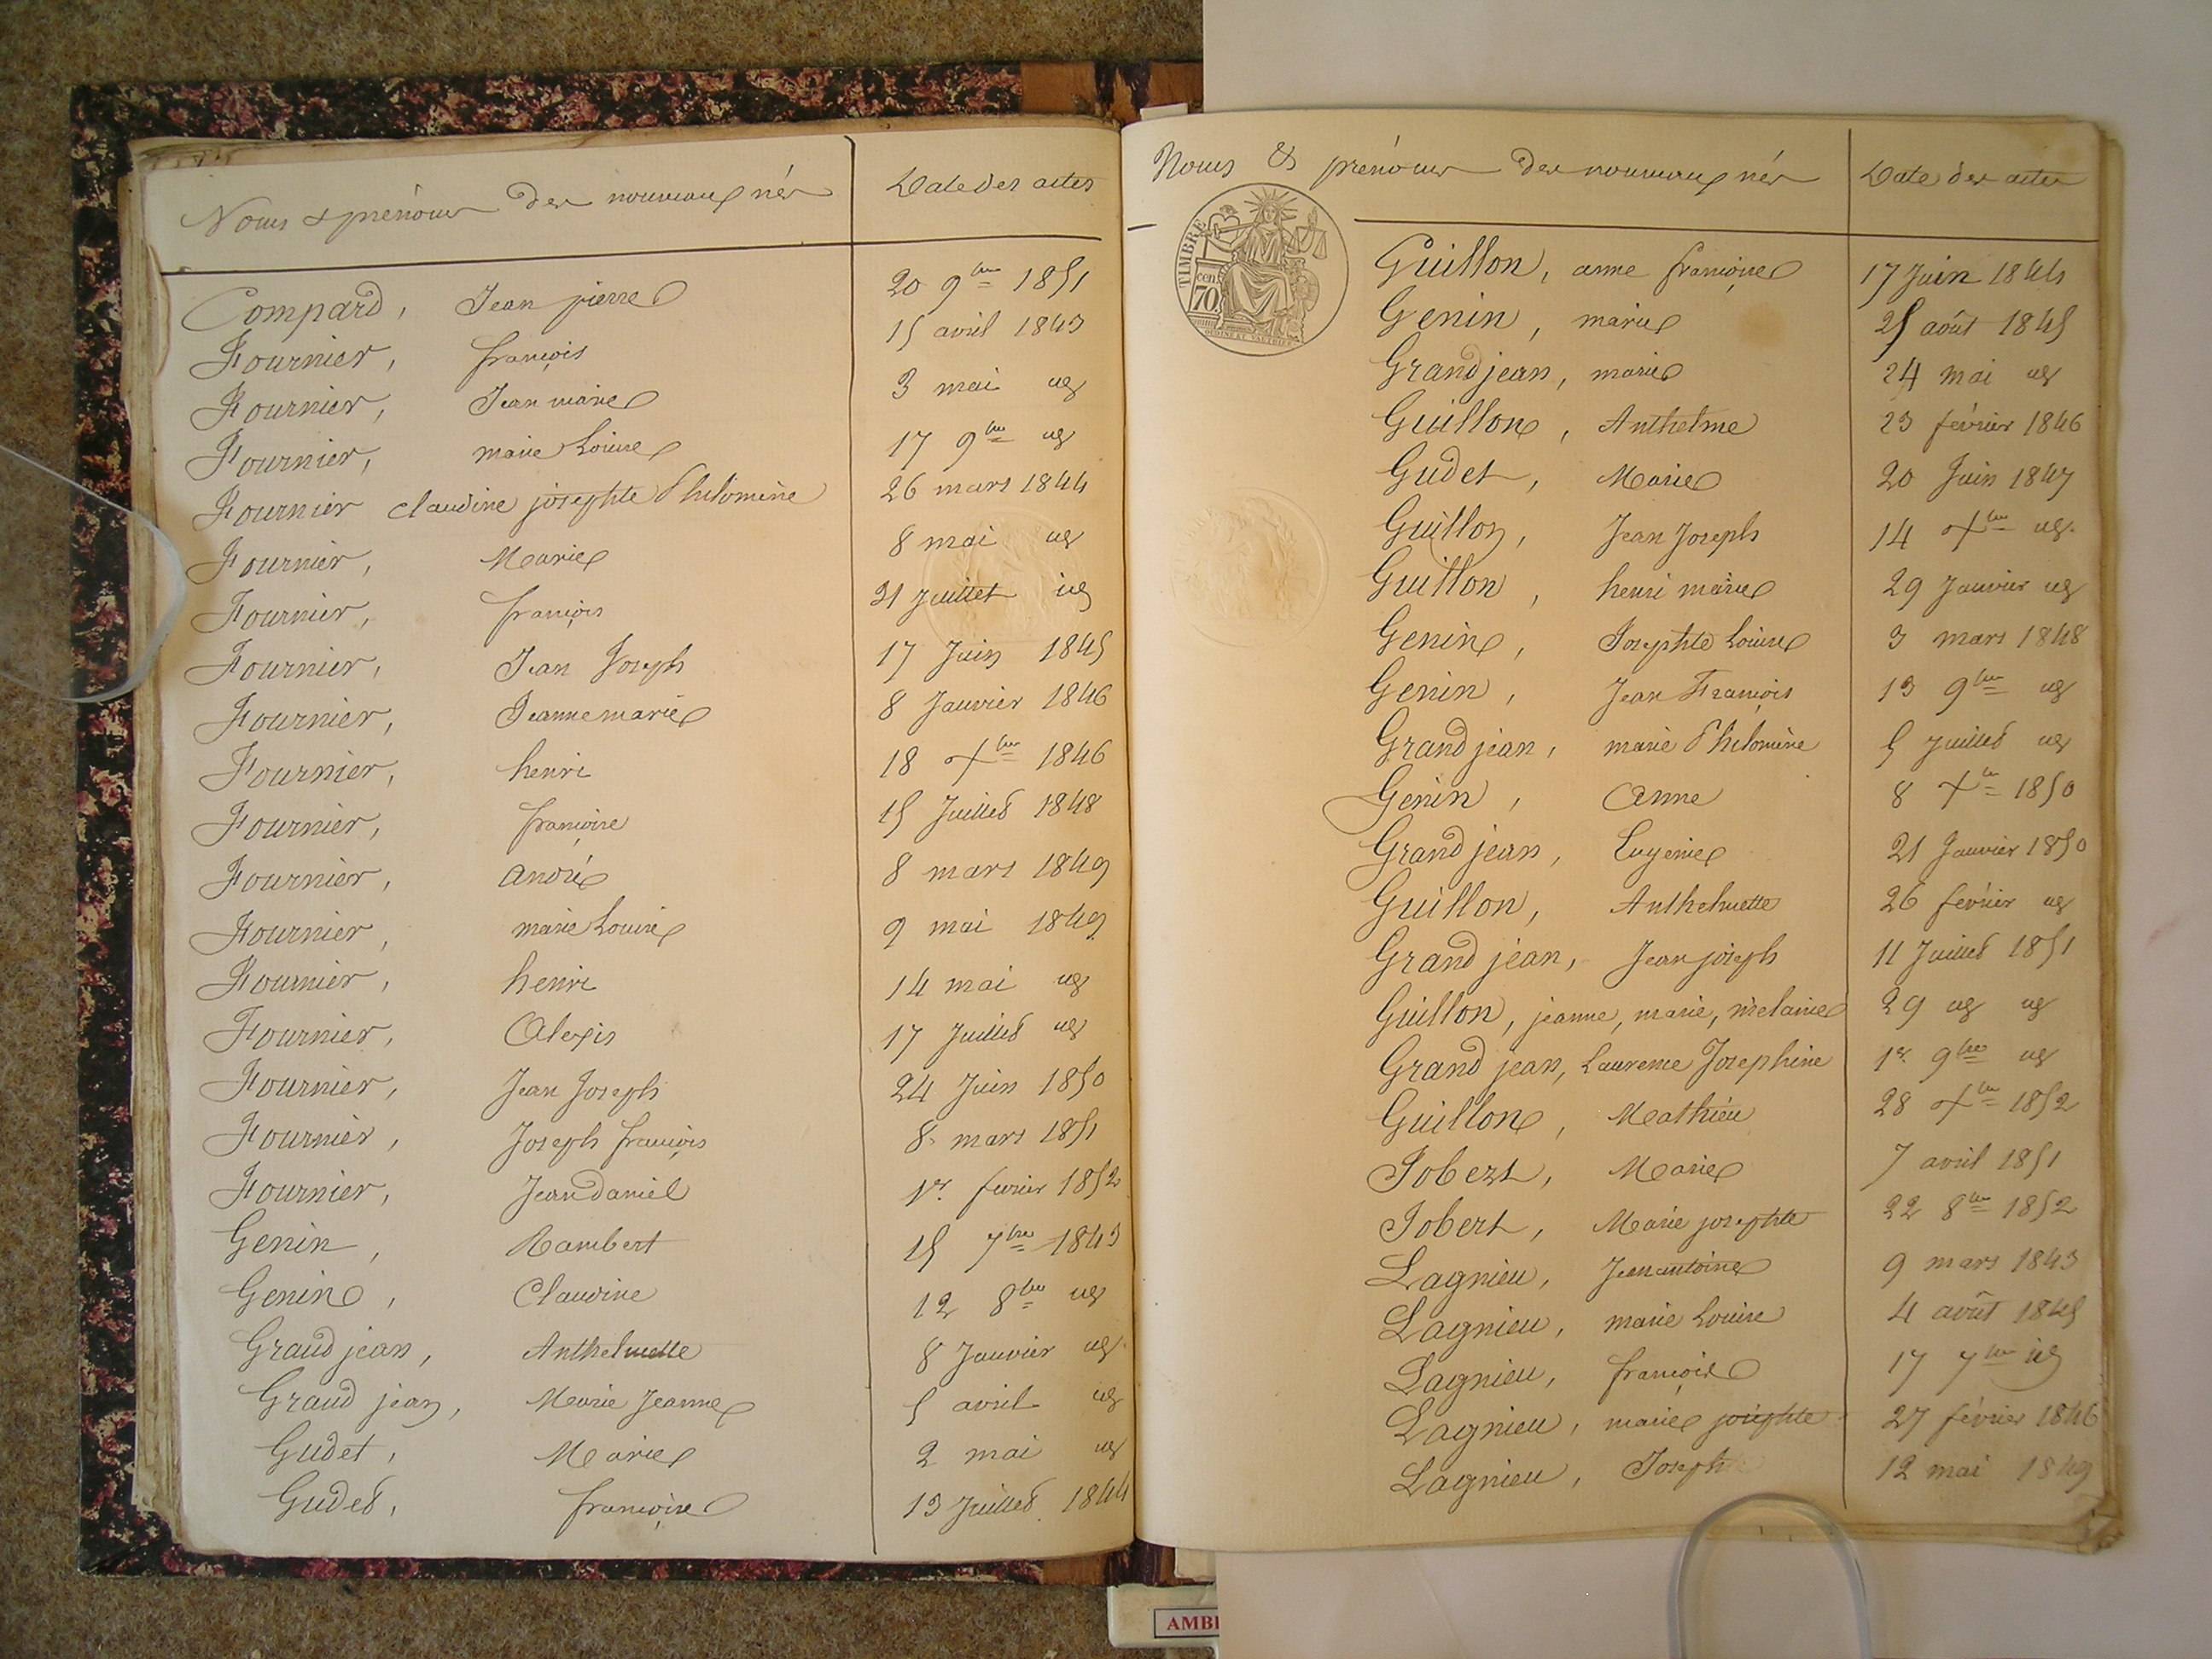 Noms & prénoms des nouveaux nés Date des actes
Compard, Jean pierre 20 9bre 1851
Fournier, françois 15 avril 1843
Fournier, Jean marie 3 mai id
Fournier, marie Louise 17 9bre id
Fournier claudine josephte Philomène 26 mars 1844
Fournier, Marie 8 mai id
Fournier, françois 31 Juillet id
Fournier, Jean Joseph 17 Juin 1845
Fournier, Jeanne marie 8 Janvier 1846
Fournier, henri 18 Xbre 1846
Fournier, françoise 15 Juillet 1848
Fournier, andré 8 mars 1849
Fournier, marie Louise 9 mai 1849
Fournier, henri 14 mai id
Fournier, Alexis 17 Juillet id
Fournier, Jean Joseph 24 Juin 1850
Fournier, Joseph françois 8 mars 1851
Fournier, Jean daniel 1er février 1852
Genin, Rambert 15 7bre 1843
Genin, Claudine 12 8bre id
Grand jean, Anthelmette 8 Janvier id
Grand jean, Marie Jeanne 5 avril id
Gudet, Marie 2 mai id
Gudet, françoise 13 Juillet 1844
Noms & prénoms des nouveaux nés Date des actes
TIMBRE
70 cen
Guillon, anne françoise 17 Juin 1844
Genin, marie 25 août 1845
Grand jean, marie 24 mai id
Guillon, Anthelme 23 février 1846
Gudet, Marie 20 Juin 1847
Guillon, Jean Joseph 14 Xbre id
Guillon, henri marie 29 Janvier id
Genin, Josephte Louise 3 mars 1848
Genin, Jean François 13 9bre id
Grand jean, marie Philomène 5 Juillet id
Genin, Anne 8 Xbre 1850
Grand jean, Eugenie 21 Janvier 1850
Guillon, Anthelmette 26 février id
Grand jean, Jean joseph 11 Juillet 1851
Guillon, jeanne, marie, mélanie 29 id id
Grand jean, Laurence Josephine 1er 9bre id
Guillon, Mathieu 28 Xbre 1852
Jobert, Marie 7 avril 1851
Jobert, Marie josephte 22 8bre 1852
Lagnieu, Jean antoine 9 mars 1843
Lagnieu, marie Louise 4 août 1845
Lagnieu, françois 17 7bre id
Lagnieu, marie josephte 27 février 1846
Lagnieu, Joseph 12 mai 1849
AMBI